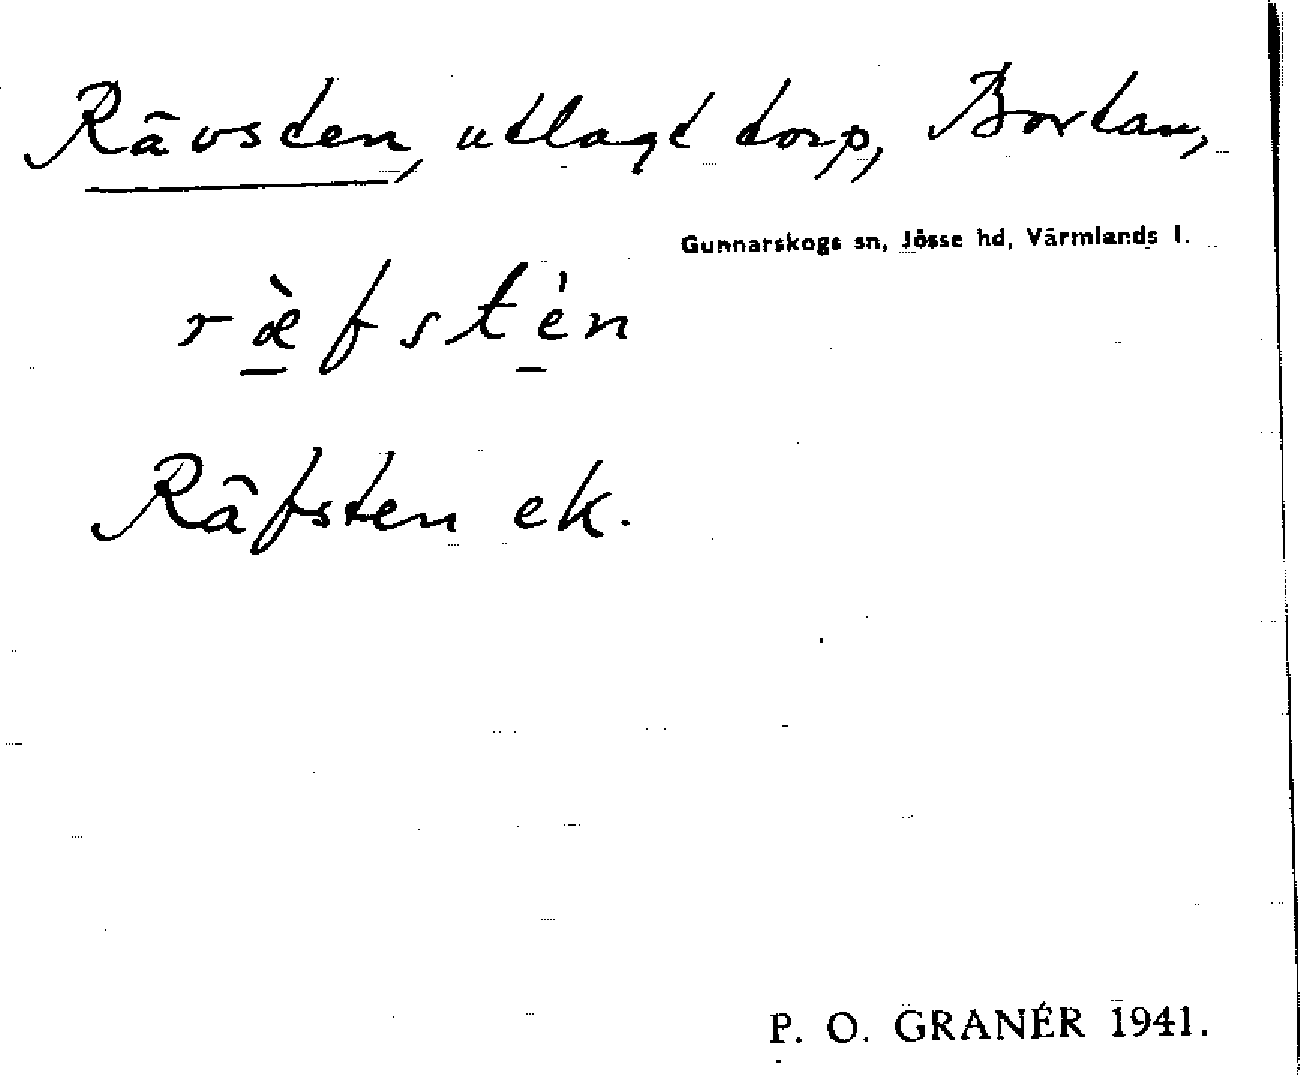 Rävsten, utlagt torp, Bortan,
Gunnarskogs sn, Jösse hd, Värmlands l.
ræ̀fstén
Räfsten ek.
P. O. GRANÉR 1941.